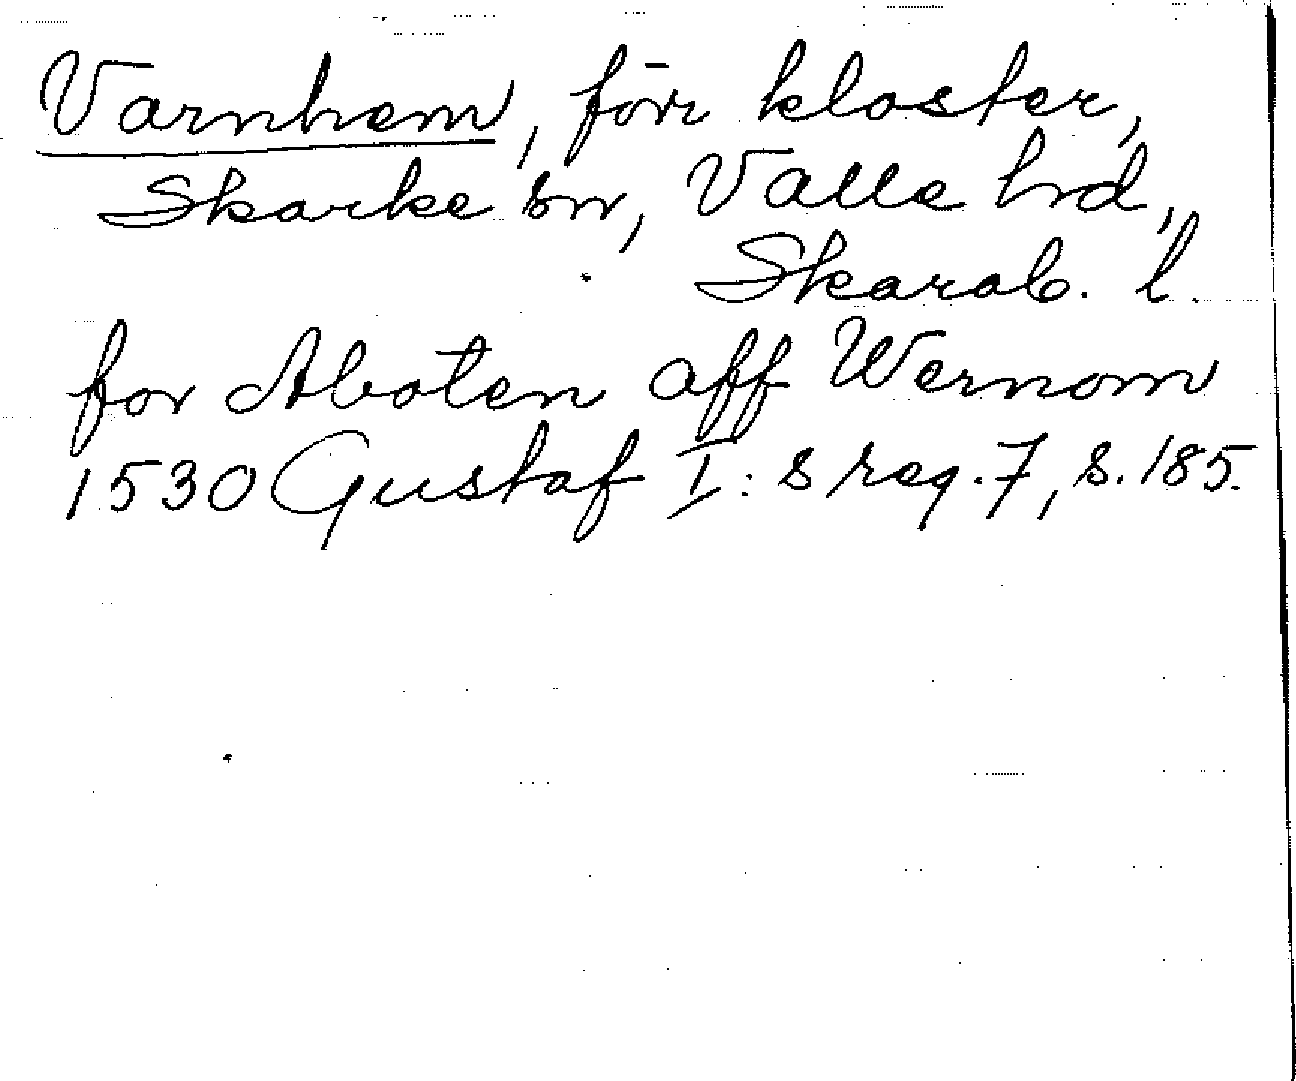 Varnhem, förr kloster,
Skarke sn, Valle hd,
Skarab. l.
for Aboten aff Wernom
1530 Gustaf I:s reg. 7, s. 185.